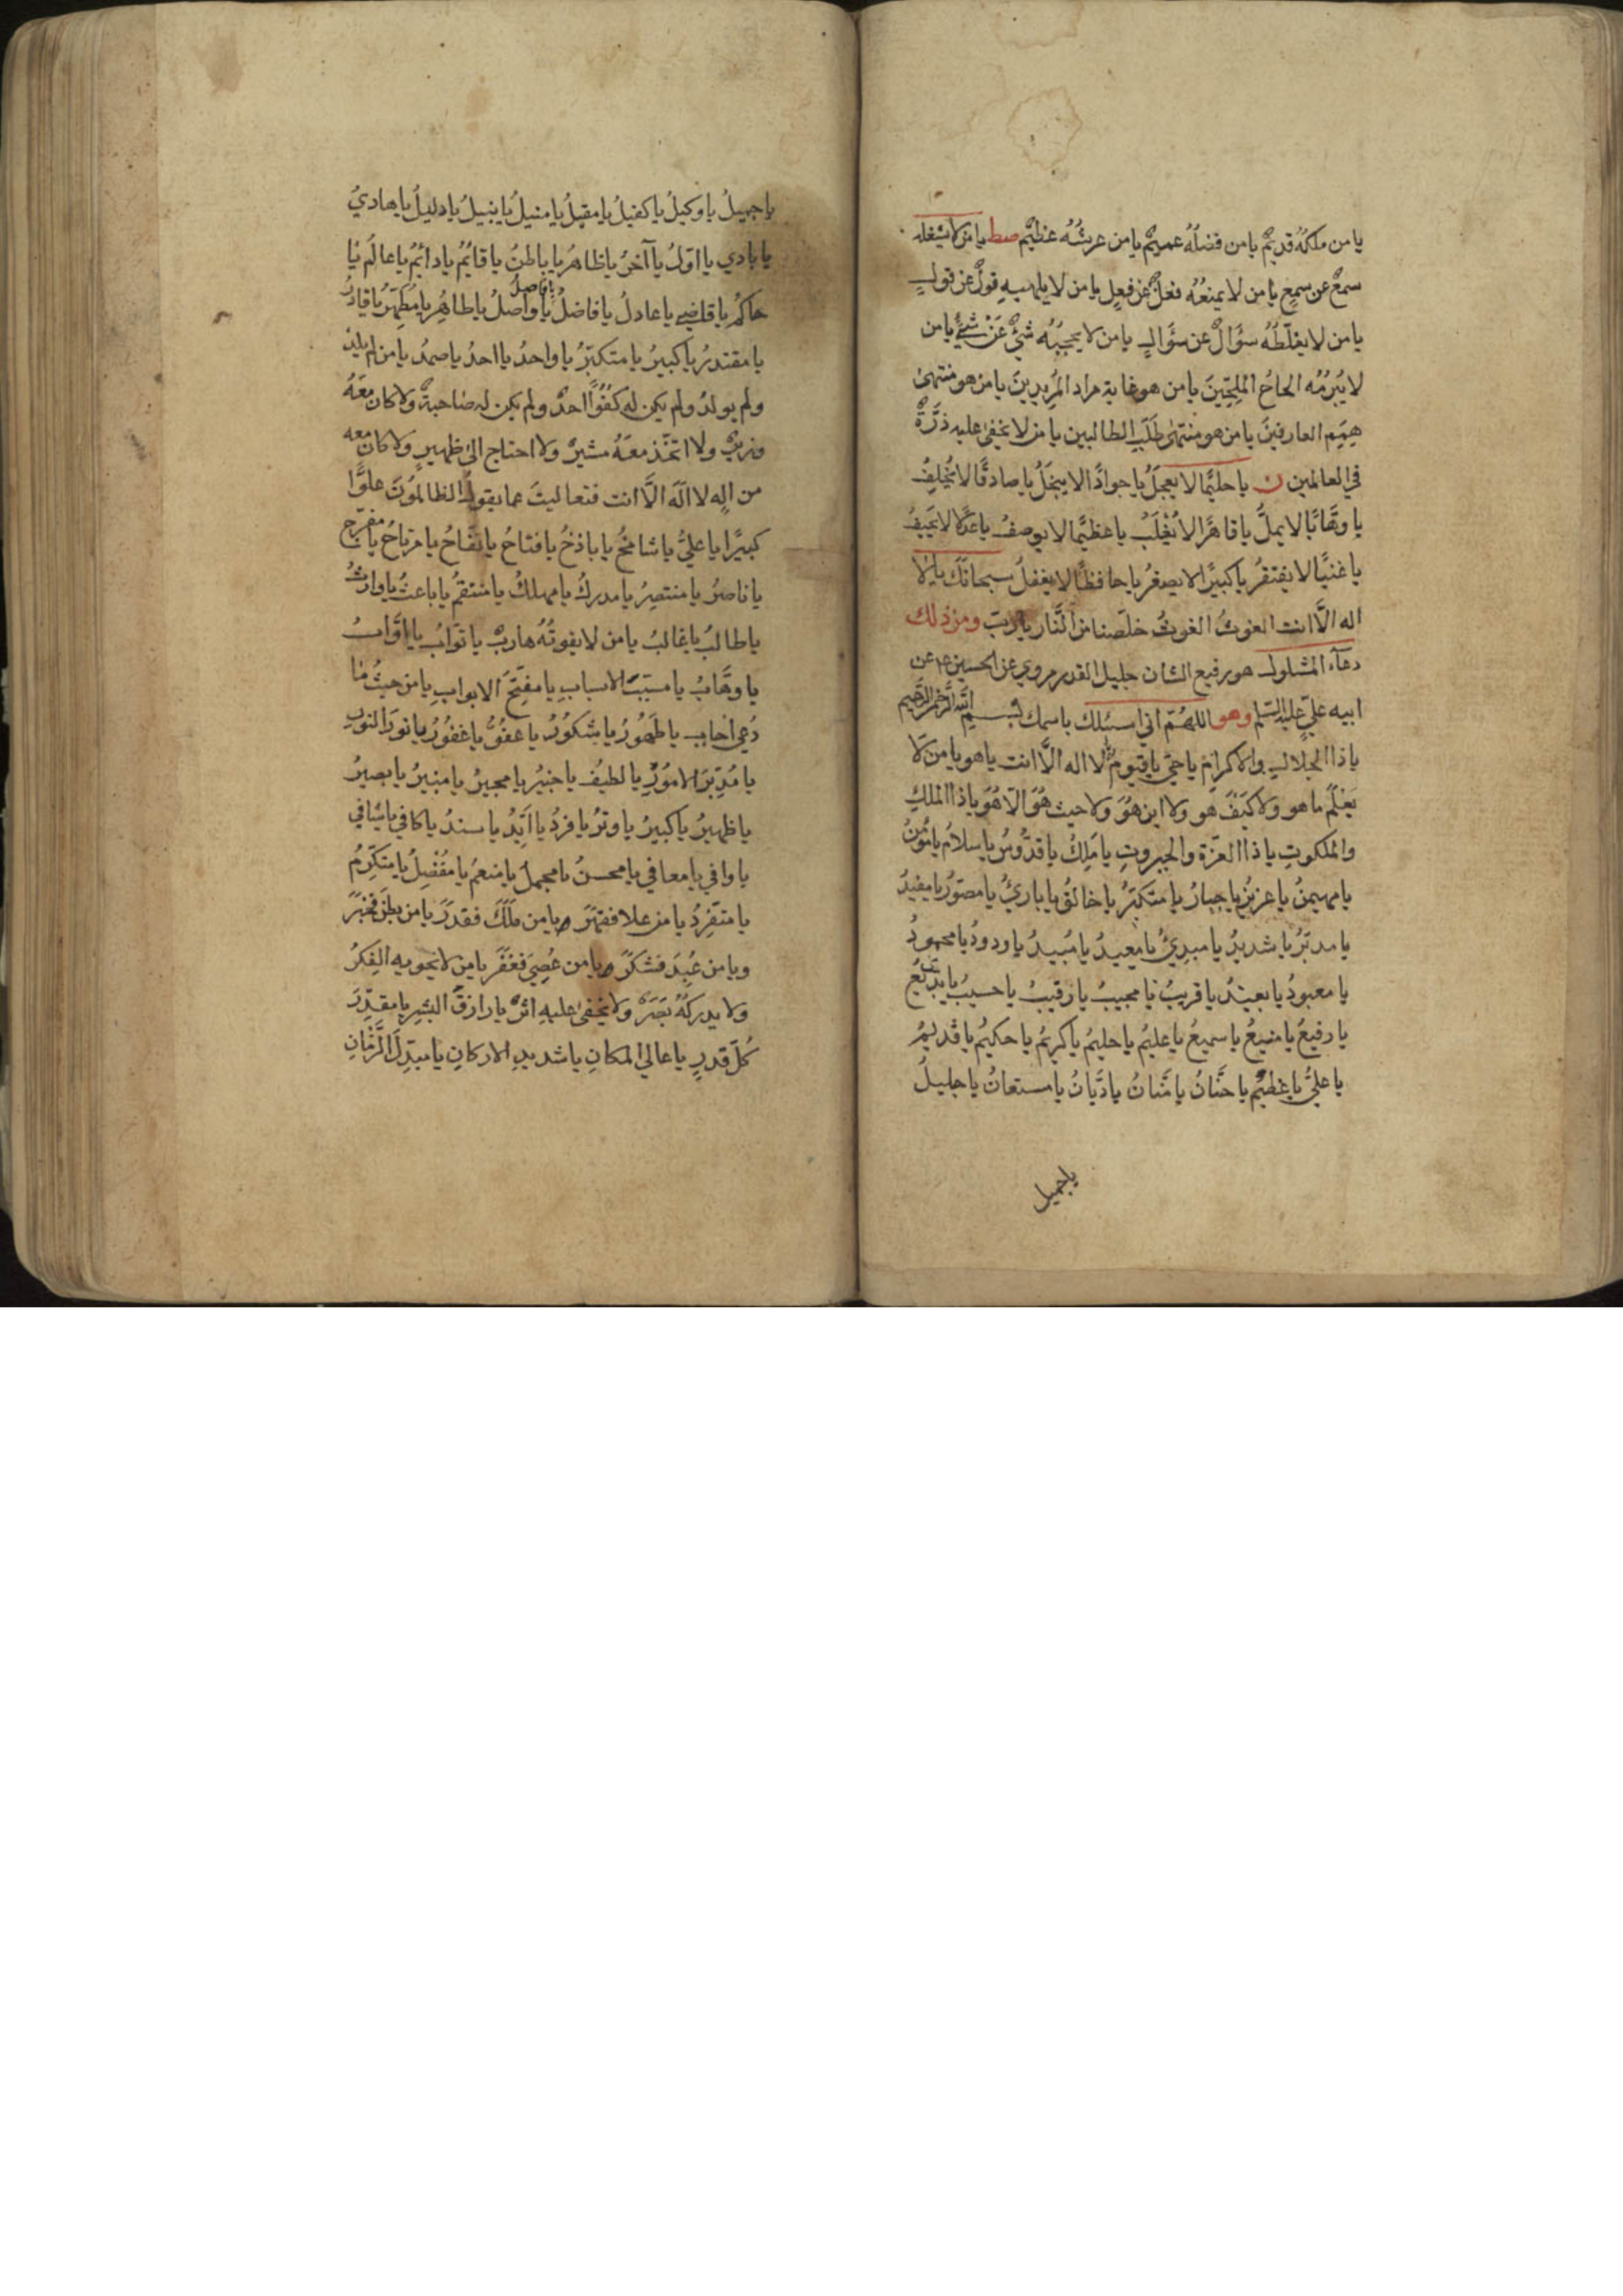 يا من ملكُهُ قديمٌ يا من فضلُهُ عميمٌ يا من عرشُهُ عظيمٌ صط يا من لا يشغله
سمعٌ عن سمعٍ يا من لا يمنعُهُ فعلٌ عن فعلٍ يا من لا يلهيهِ قولٌ عن قولٍ
يا من لا يغلّطُهُ سؤالٌ عن سؤالٍ يا من لا يحجبُهُ شئٌ عَنْ شئٍ يا من
لا يُبْرِمُه الحاحُ المُلِحّينَ يا من هو غاية مراد المُريدينَ يا من هو منتهىٰ
هِمَمِ العارفينَ يا من هو منتهىٰ طَلَبِ الطالبين يا من لا يخفىٰ عليه ذرَّةٌ
في العالمين ن يا حليمًا لا يعجَلُ يا جوادًا لا يبخَلُ يا صادقًا لا يُخلِفُ
يا وهّابًا لا يملُّ يا قاهرًا لا يُغْلَبُ يا عظيمًا لا يوصفُ يا عدلًا لا يَحيفُ
يا غنيًّا لا يفتقرُ يا كبيرًا لا يصغرُ يا حافظًا لا يغفلُ سبحانك يا لا
اله الّا انت الغوثَ الغوثَ خلّصنا من النّار يا ربّ ومن ذلك
دعآء المشلول هو رفيع الشان جليل القدر مروي عن الحسين ع عن
ابيه عليّ عليه السّلم وهو اللهُمّ اني اسئلك باسمك بسم اللّه الرّحمن الرّحيم
يا ذا الجلالِ والاكرام يا حيّ يا قيومُ لا اله الّا انت يا هو يا من لا
يَعْلَمُ ما هو ولا كَيْفَ هو ولا اين هُوَ ولا حيث هُوَ الّا هُوَ يا ذا الملكِ
والملكوتِ يا ذا العزّة والجبروتِ يا مَلِكُ يا قدُّوسُ يا سلامُ يا مُؤمنُ
يا مهيمنُ يا عزيزُ يا جبارُ يا متكبّرُ يا خالقُ يا بارئُ يا مصوّرُ يا مفيدُ
يا مدبّرُ يا شديدُ يا مبدئُ يا معيدُ يا مُبيدُ يا ودودُ يا محمودُ
يا معبودُ يا بعيدُ يا قريبُ يا مجيبُ يا رقيبُ يا حسيبُ يا بديعُ
يا رفيعُ يا منيعُ يا سميعُ يا عليمُ يا حليمُ يا كريمُ يا حكيمُ يا قديمُ
يا عليُّ يا عظيمُ يا حنّانُ يا منّانُ يا ديّانُ يا مستعانُ يا جليلُ
يا جميل
يا جميلُ يا وكيلُ يا كفيلُ يا مقيلُ يا منيلُ يا نبيلُ يا دليلُ يا هاديُ
يا بادي يا اوّلُ يا آخرُ يا ظاهرُ يا باطنُ يا قائمُ يا دائمُ يا عالمُ يا
حاكمُ يا قاضي يا عادلُ يا فاضلُ يا واصلُ يا طاهرُ يا مُطهّرُ يا قادرُ
يا فاصلُ
يا مقتدرُ يا كبيرُ يا متكبّرُ يا واحدُ يا احدُ يا صمدُ يا من لم يلد
ولم يولدُ ولم يكن له كفُوًا احدٌ ولم يكن له صاحبةٌ ولا كان معَهُ
وزيرٌ ولا اتخذ معَهُ مشيرٌ ولا احتاج الىٰ ظهيرٍ ولا كان معه
من الٰهٍ لا الٰهَ الّا انت فتعاليتَ عما يقولُ الظالمُونَ علوًّا
كبيرًا يا عليُّ يا شامخُ يا باذخُ يا فتاحُ يا نفّاحُ يا مرتاحُ يا مفرّج
يا ناصرُ يا منتصِرُ يا مدركُ يا مهلكُ يا منتقمُ يا باعثُ يا وارثُ
يا طالبُ يا غالبُ يا من لا يفوتُهُ هاربٌ يا توّابُ يا اوّابُ
يا وهّابُ يا مسبّبَ الاسبابِ يا مفتّحَ الابوابِ يا من حيثُ مٰا
دُعي اجاب يا طَهُورُ يا شكُورُ يا عفُوُّ يا غفُورُ يا نورَ النورِ
يا مُدبّرَ الامُورِ يا لطيفُ يا خبيرُ يا مجيرُ يا منيرُ يا بصيرُ
يا ظهيرُ يا كبيرُ يا وترُ يا فردُ يا ابدُ يا سندُ يا كافي يا شافي
يا وافي يا معافي يا محسنُ يا مجملُ يا منعمُ يا مُفْضِلُ يا متكرّمُ
يا متفرّدُ يا من علا فقهَرَ ويا من مَلَكَ فقدَرَ يا من بطَنَ فخبَرَ
ويا من عُبِدَ فشكَرَ ويا من عُصِيَ فغَفَرَ يا من لا تحويه الفِكَرُ
ولا يدركهُ بَصَرٌ ولا يخفىٰ عليهِ اثرٌ يا رازقَ البشرِ يا مقدّرَ
كُلّ قدرٍ يا عاليَ المكانِ يا شديد الاركانِ يا مبدّلَ الزّمانِ